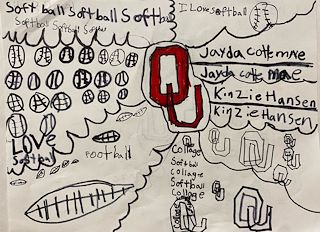 Softball Softball Softball
Softball Softball Softball
I Love Softball
OU
Jayda Coleman
Jayda Coleman
Kinzie Hansen
Kinzie Hansen
Love
Softball
Football
Collage
Softball
collage
Softball
Collage
OU
OU